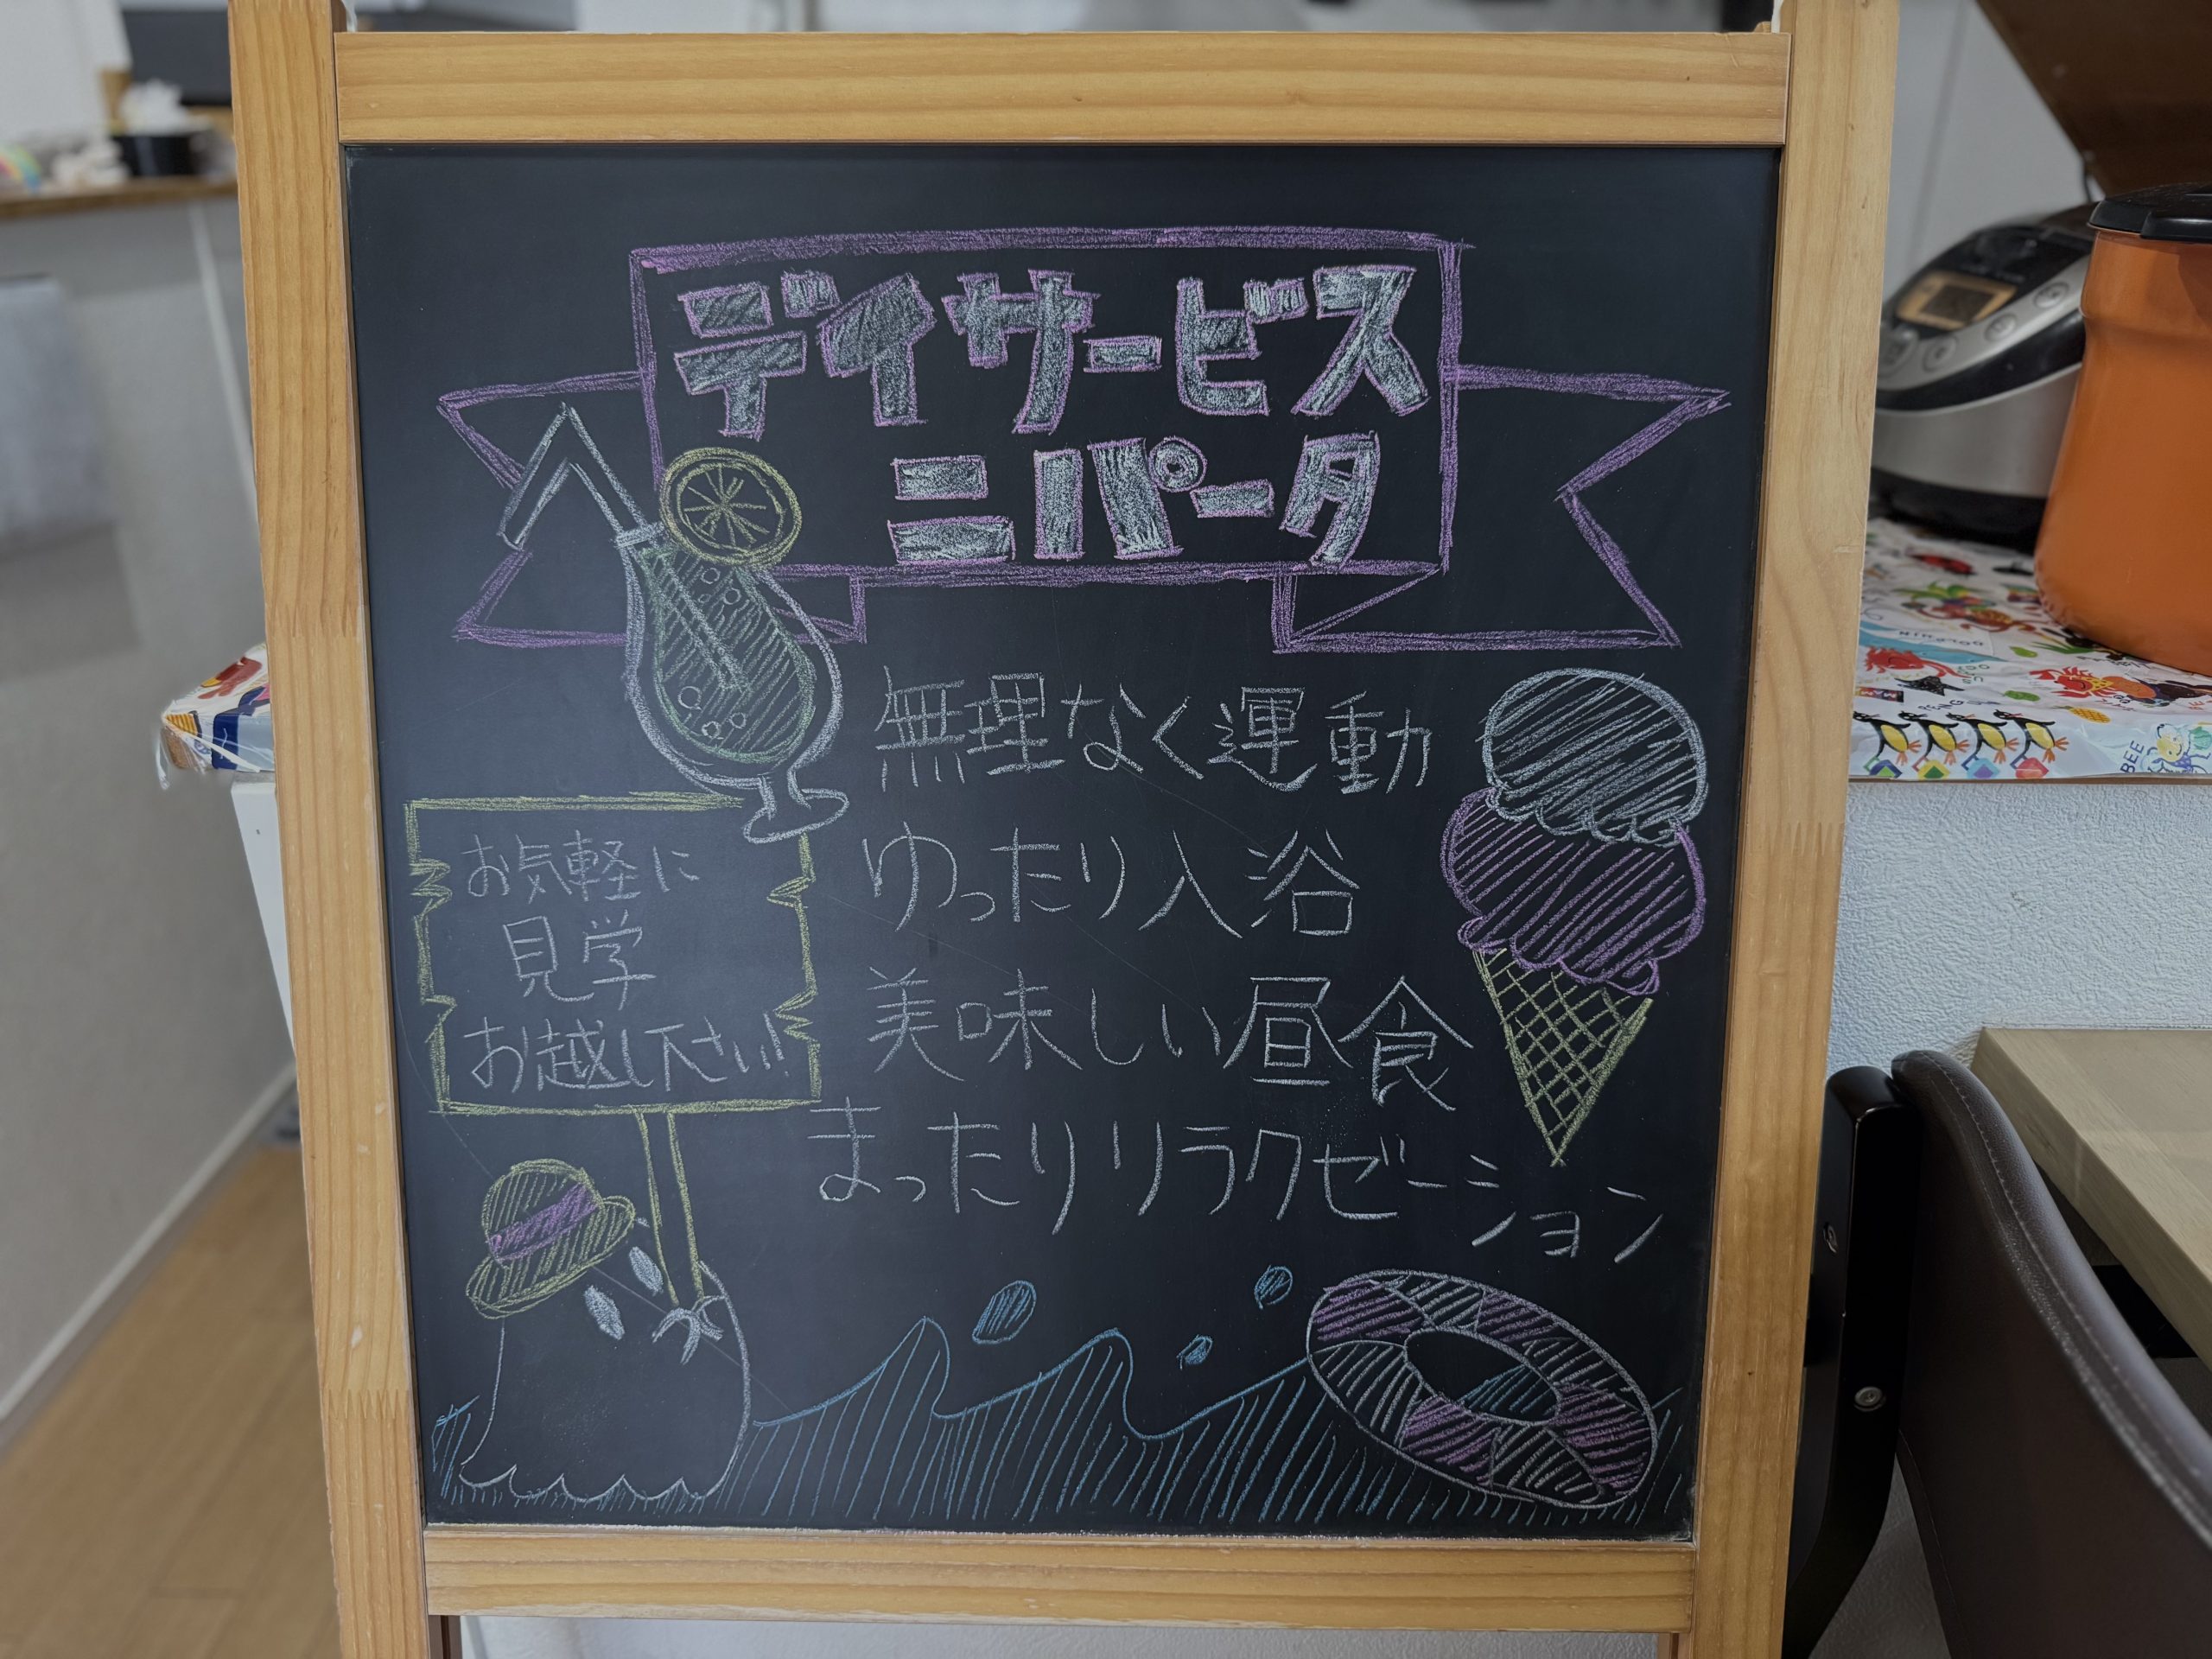 デイサービス
ニパータ
無理なく運動
ゆったり入浴
美味しい昼食
まったりリラクゼーション
お気軽に
見学
お越し下さい!!
BEE